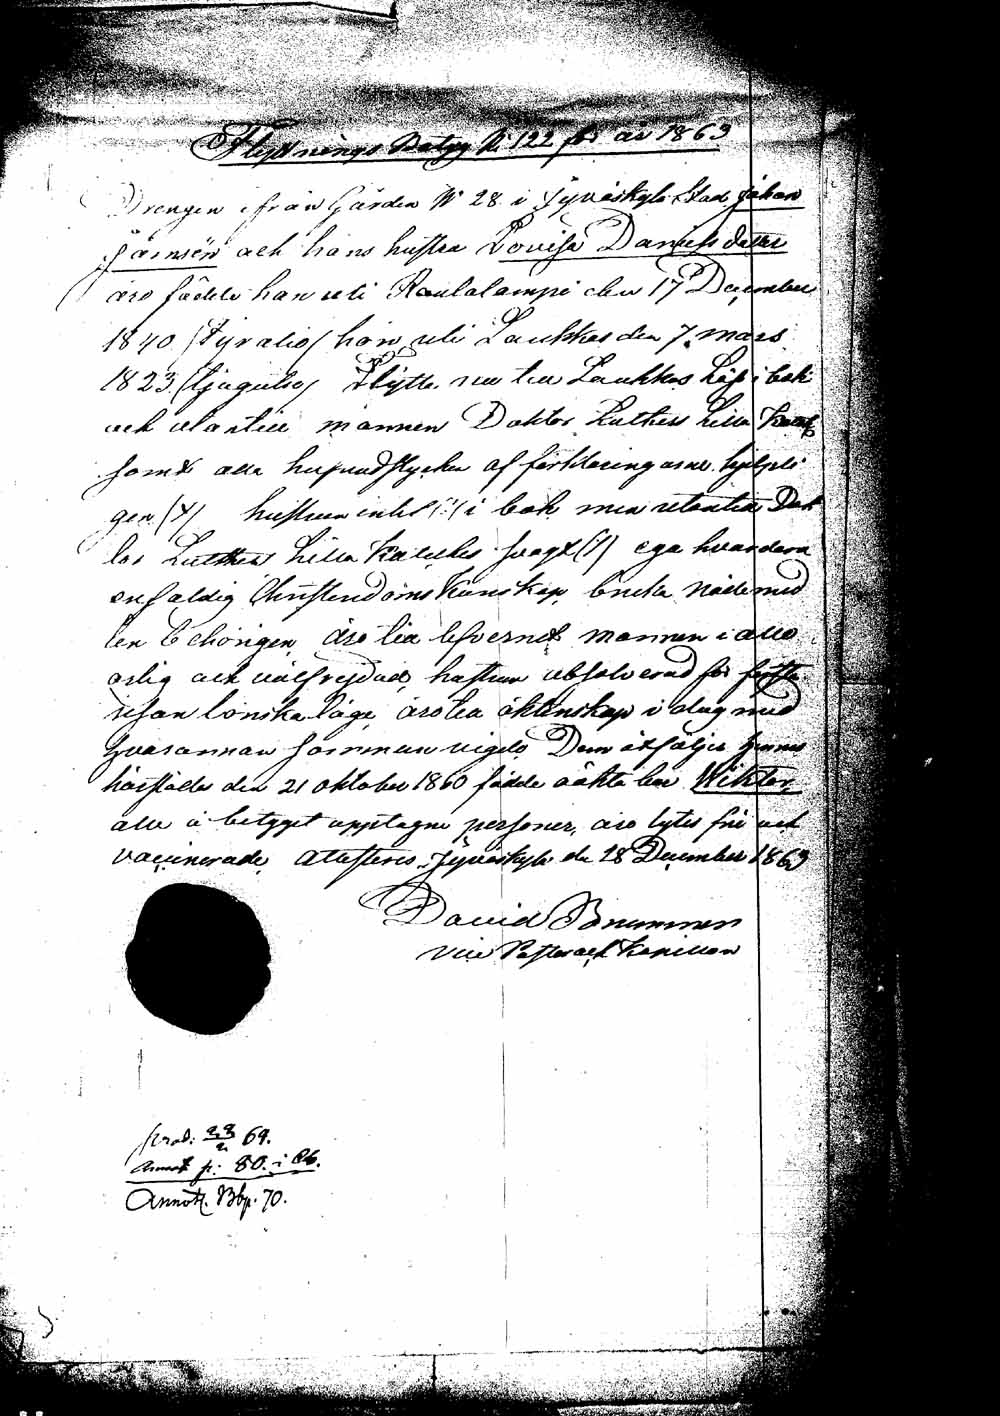 Flyttnings Betyg N: 122 för år 1863
Drengen ifrån Gården N 28 i Jyväskylä Stad Johan
Jämsén och hans hustru Lovisa Danielsdotter
äro födde han uti Rautalampi den 17 December
1840 /fyratio/ hon uti Laukkas den 7 mars
1823 /tjugutre/ Flytta nu till Laukkas Läs i bok
och utantill mannen Doktor Luthers Lilla
samt alla hufvudstycken af förklaringarne
gen (x) hustrun i bok men utantill Dok
tor Luthers Lilla Kateches svagt (/) ega hvardera
enfaldig Christendoms Kunskap, bruka nådemed
len behörigen, äro till lefvernet mannen i allo
ärlig och välfrejdad, hustrun absolverad för första
resan lönskaläge, äro till äktenskap i dag med
hvarannan samman vigde Dem åtföljer hennes
härstädes den 21 oktober 1860 födde oäkta son Wiktor,
alla å betyget upptagne personer, äro lytes fri och
vaccinerade, attesteras, Jyväskylä den 28 December 1863
David Brummer
Vice Pastor och Kapellan
prod: 23/2 69.
Annot p: 80. i
Annot. Bbp. 70.